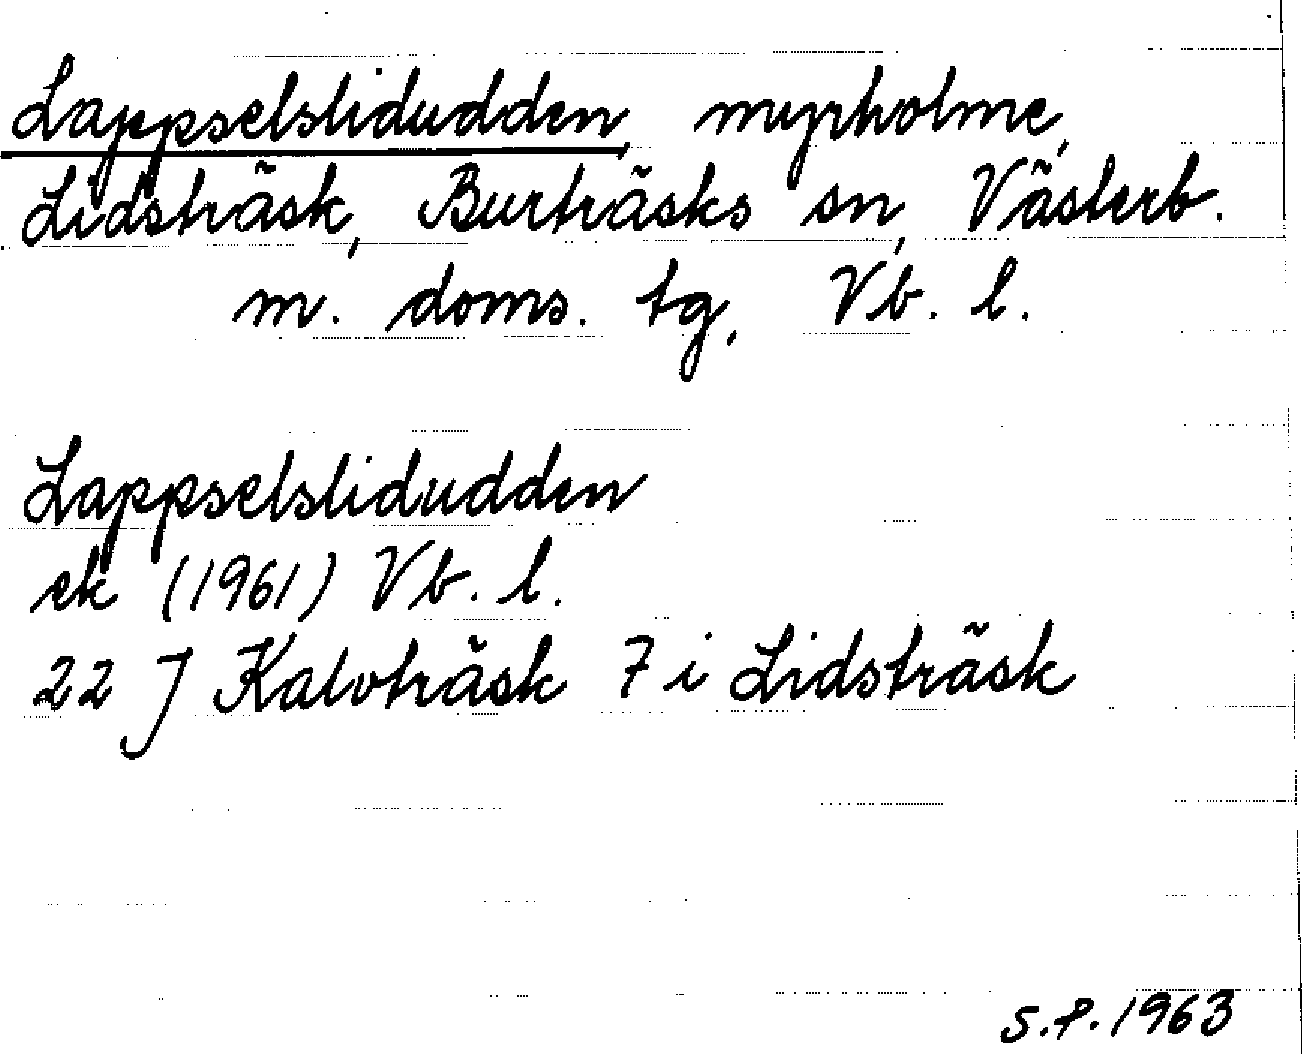 Lappselslidudden, myrholme,
Lidsträsk, Burträsks sn, Västerb.
m. doms. tg, Vb. l.
Lappselslidudden
ek (1961) Vb. l.
22 J Kalvträsk 7 i Lidsträsk
S.P. 1963